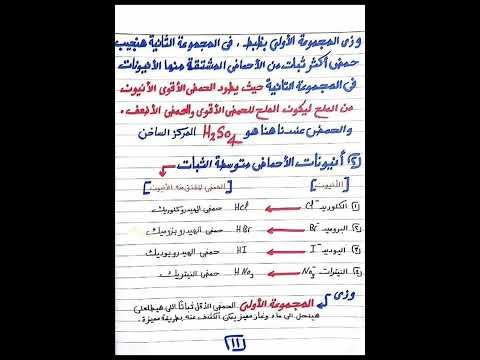 وزى المجموعة الأولي بظبط ، فى المجموعة الثانية هنجيب
حمض أكثر ثبات من الأحماض المشتقة منها الأنيونات
فى المجموعة الثانية حيث يطرد الحمض الأقوى الأنيون
من الملح ليكون الملح للحمض الأقوى والحمض الأضعف .
والحمض عندنا هنا هو H₂SO₄ المركز الساخن
أنيونات الأحماض متوسطة الثبات
[الأنيون] [الحمض المشتق منه الأنيون]
١) الكلوريد Cl⁻ HCl حمض الهيدروكلوريك
٢) البروميد Br⁻ HBr حمض الهيدروبروميك
٣) اليوديد I⁻ HI حمض الهيدرويوديك
٤) النيترات NO₃⁻ HNO₃ حمض النيتريك
وزى
المجموعة الأولى الحمض الأقل ثباتًا اللى هيطلع
هينحل الى ماء وغاز مميز يمكن الكشف عنه بطريقة مميزة.
١١